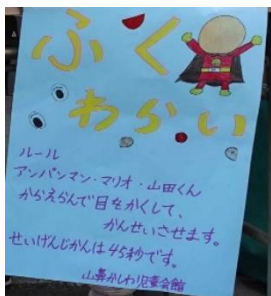 ふく
わらい
ルール
アンパンマン・マリオ・山田くん
からえらんで目をかくして、
かんせいさせます。
せいげんじかんは45秒です。
山鼻かしわ児童会館